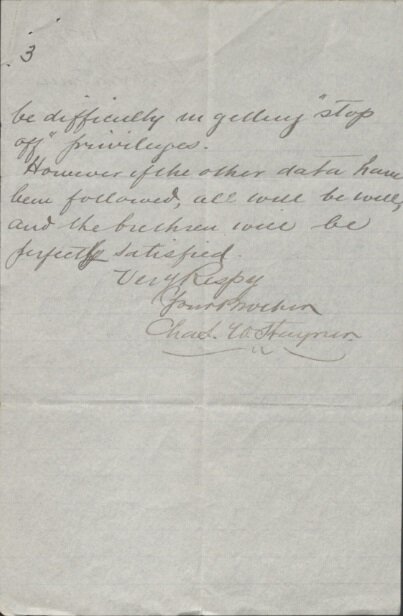 3
be difficulty in getting "stop
off" privileges.
However if the other data have
been followed, all will be well,
and the brethren will be
perfectly satisfied.
Very Respy
Your Brother
Chas. W. Hayner